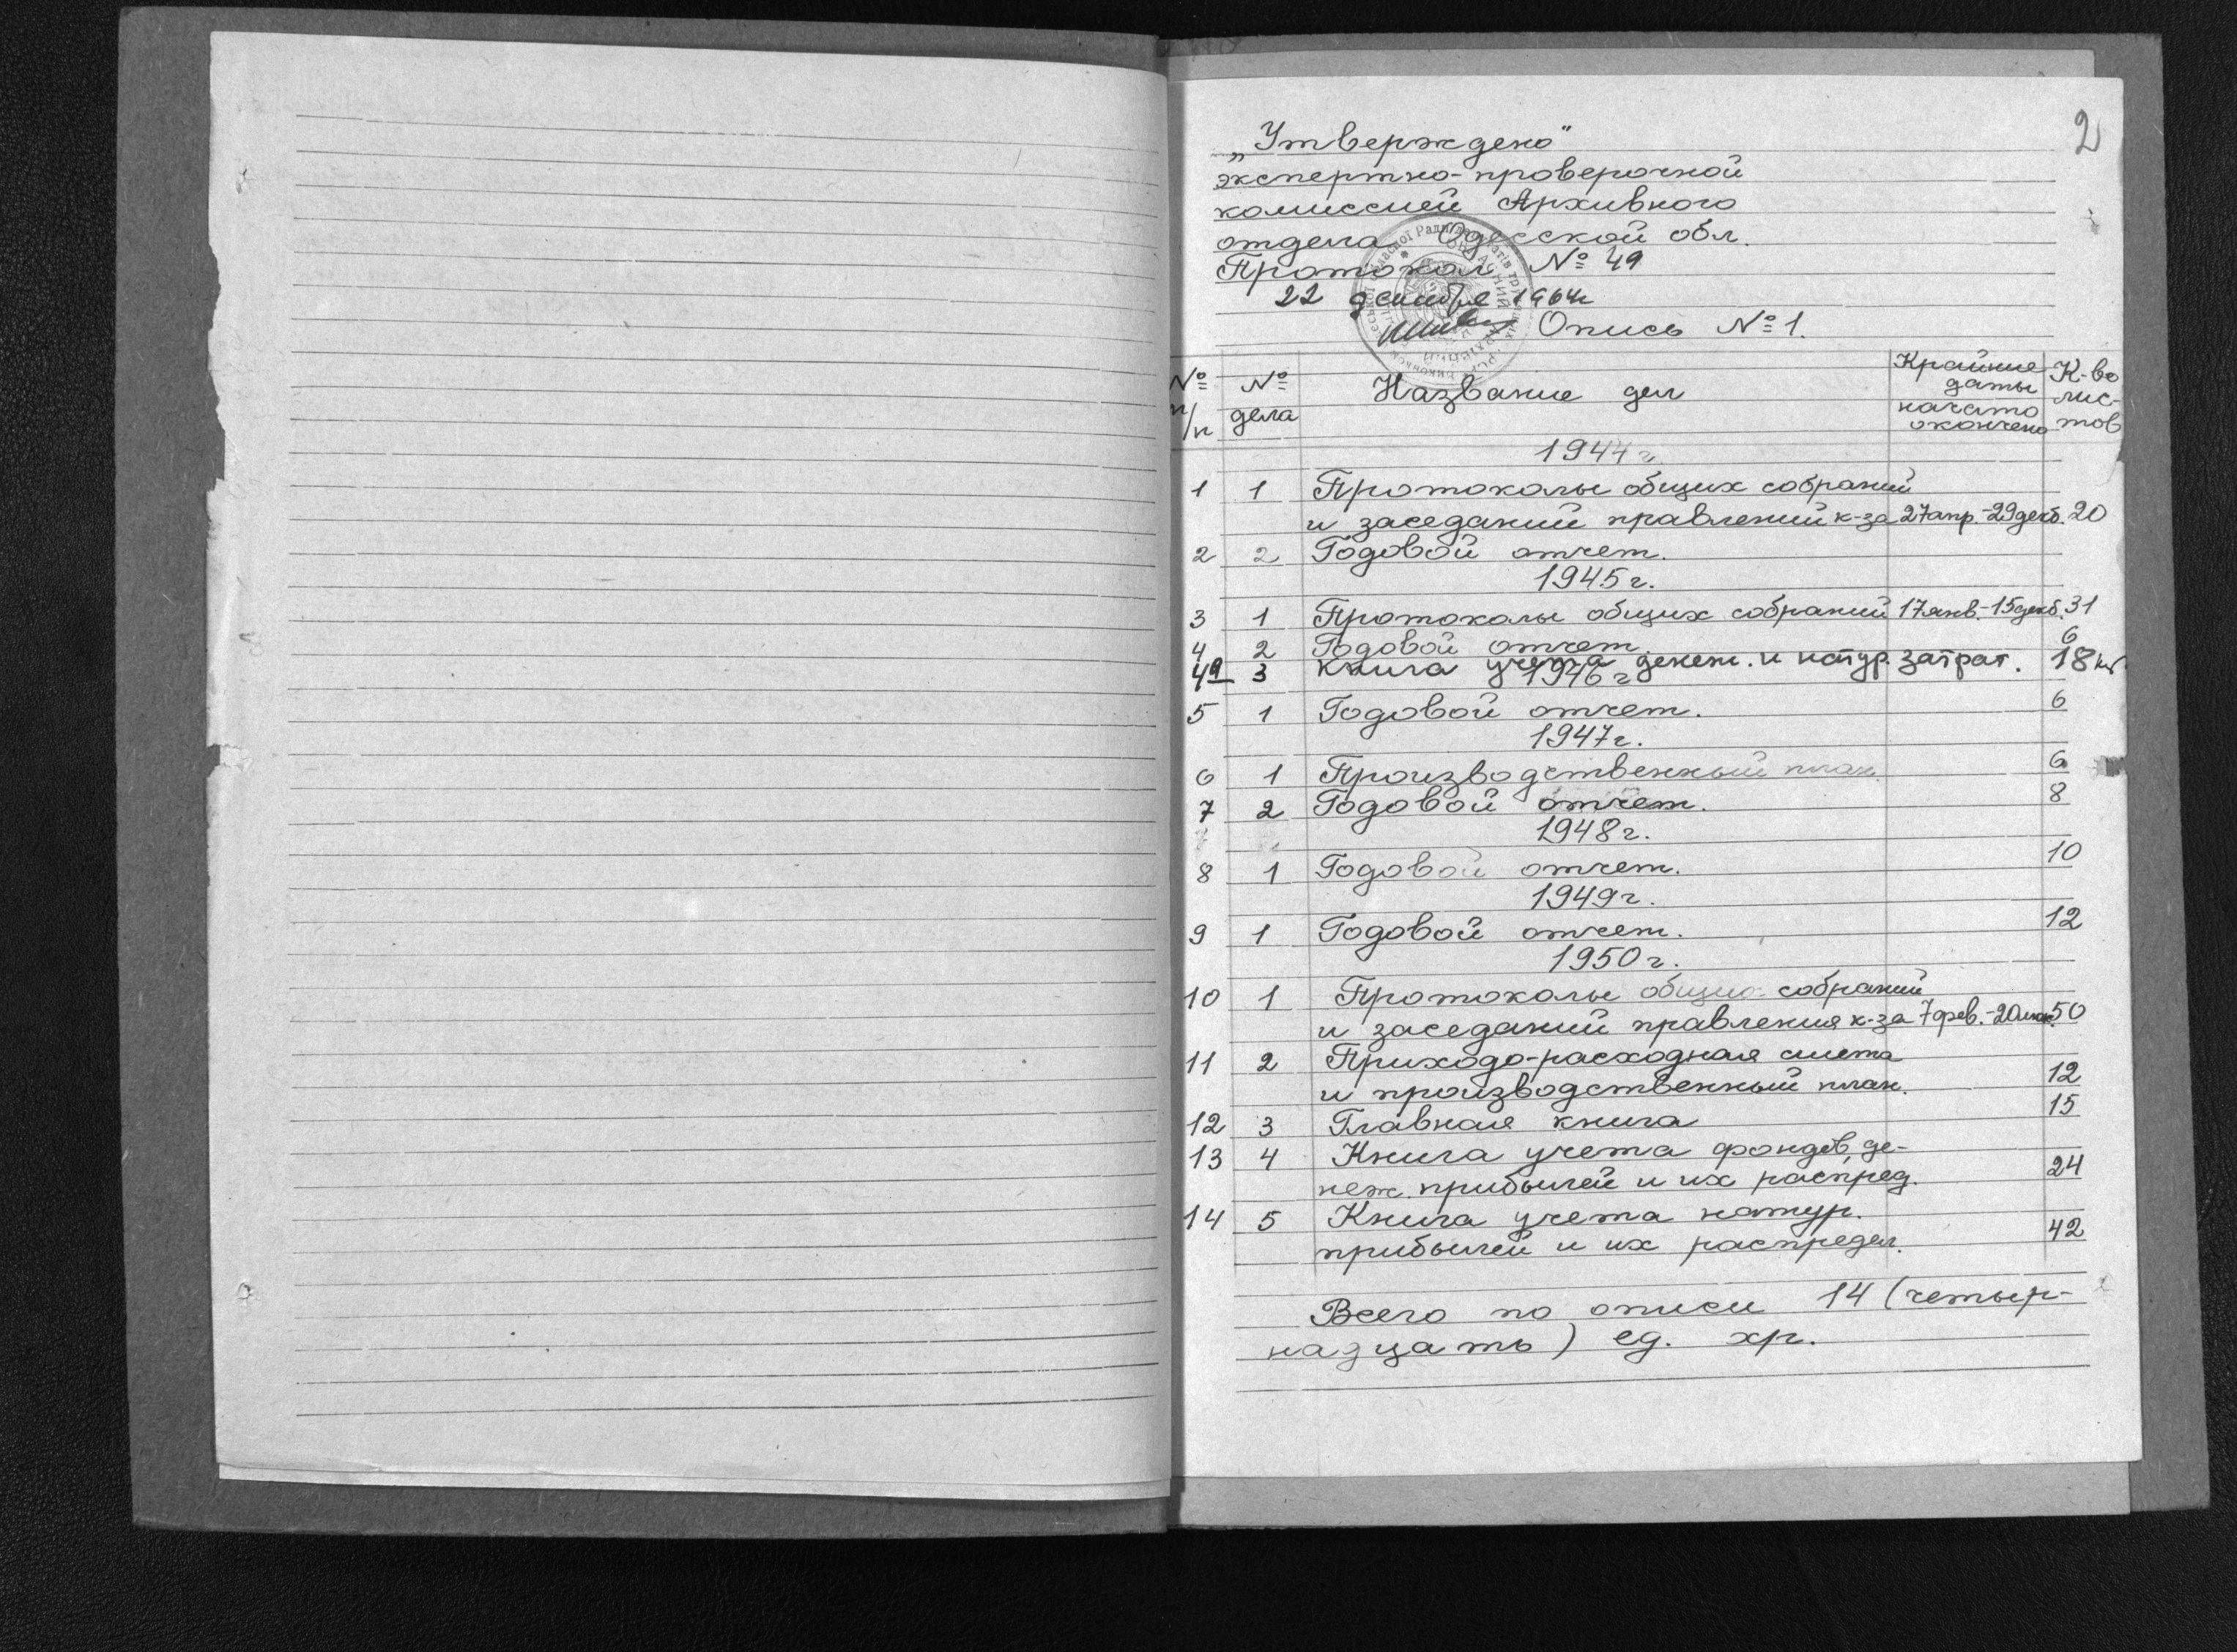 2
„Утверждено"
экспертно-проверочной
комиссией Архивного
отдела Одесской обл.
Протокол № 49
22 декабря 1964г
Опись № 1.
№ п/п № дела Название дел Крайние даты начато окончено К-во лис-тов
1944 г.
1 1 Протоколы общих собраний
и заседаний правлений к-за 27апр.-29дек. 20
2 2 Годовой отчет.
1945 г.
3 1 Протоколы общих собраний 17янв.-15дек. 31
4 2 Годовой отчет. 6
4а 3 Книга учета денеж. и натур. затрат. 18
1946 г
5 1 Годовой отчет. 6
1947 г.
6 1 Производственный план. 6
7 2 Годовой отчет. 8
1948 г.
8 1 Годовой отчет. 10
1949 г.
9 1 Годовой отчет. 12
1950 г.
10 1 Протоколы общих собраний
и заседаний правления к-за 7фев.-20 50
11 2 Приходо-расходная смета
и производственный план. 12
12 3 Главная книга 15
13 4 Книга учета фондов, де-
неж. прибылей и их распред. 24
14 5 Книга учета натур.
прибылей и их распредел. 42
Всего по описи 14 (четыр-
надцать) ед. хр.